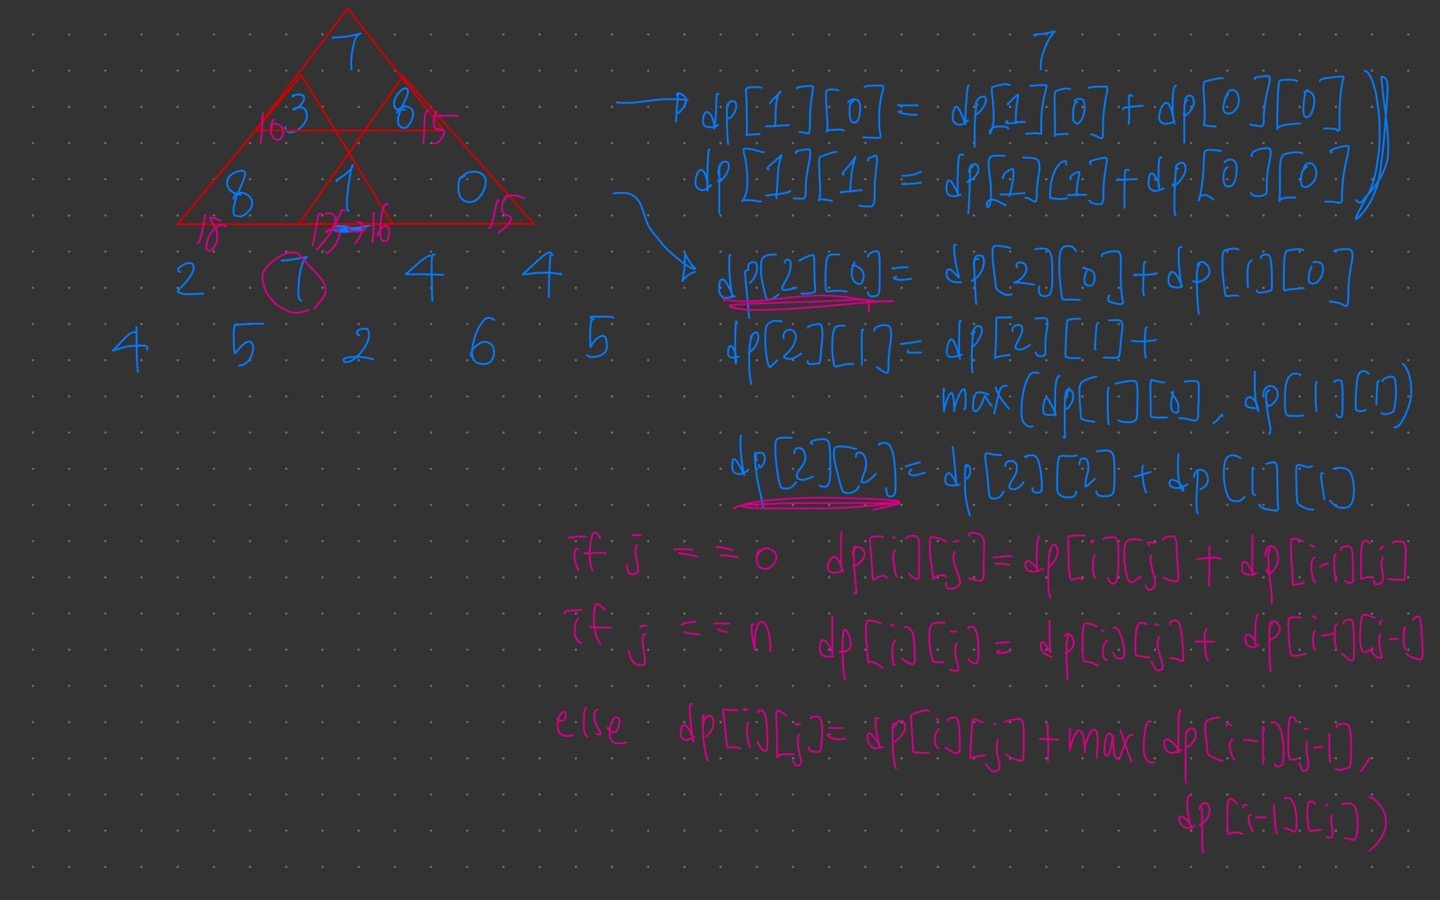 7
3 8
10 15
8 1 0
18 16 15
2 7 4 4
4 5 2 6 5
7
dp[1][0] = dp[1][0] + dp[0][0]
dp[1][1] = dp[1][1] + dp[0][0]
dp[2][0] = dp[2][0] + dp[1][0]
dp[2][1] = dp[2][1] +
max(dp[1][0], dp[1][1])
dp[2][2] = dp[2][2] + dp[1][1]
if j == 0 dp[i][j] = dp[i][j] + dp[i-1][j]
if j == n dp[i][j] = dp[i][j] + dp[i-1][j-1]
else dp[i][j] = dp[i][j] + max(dp[i-1][j-1],
dp[i-1][j])